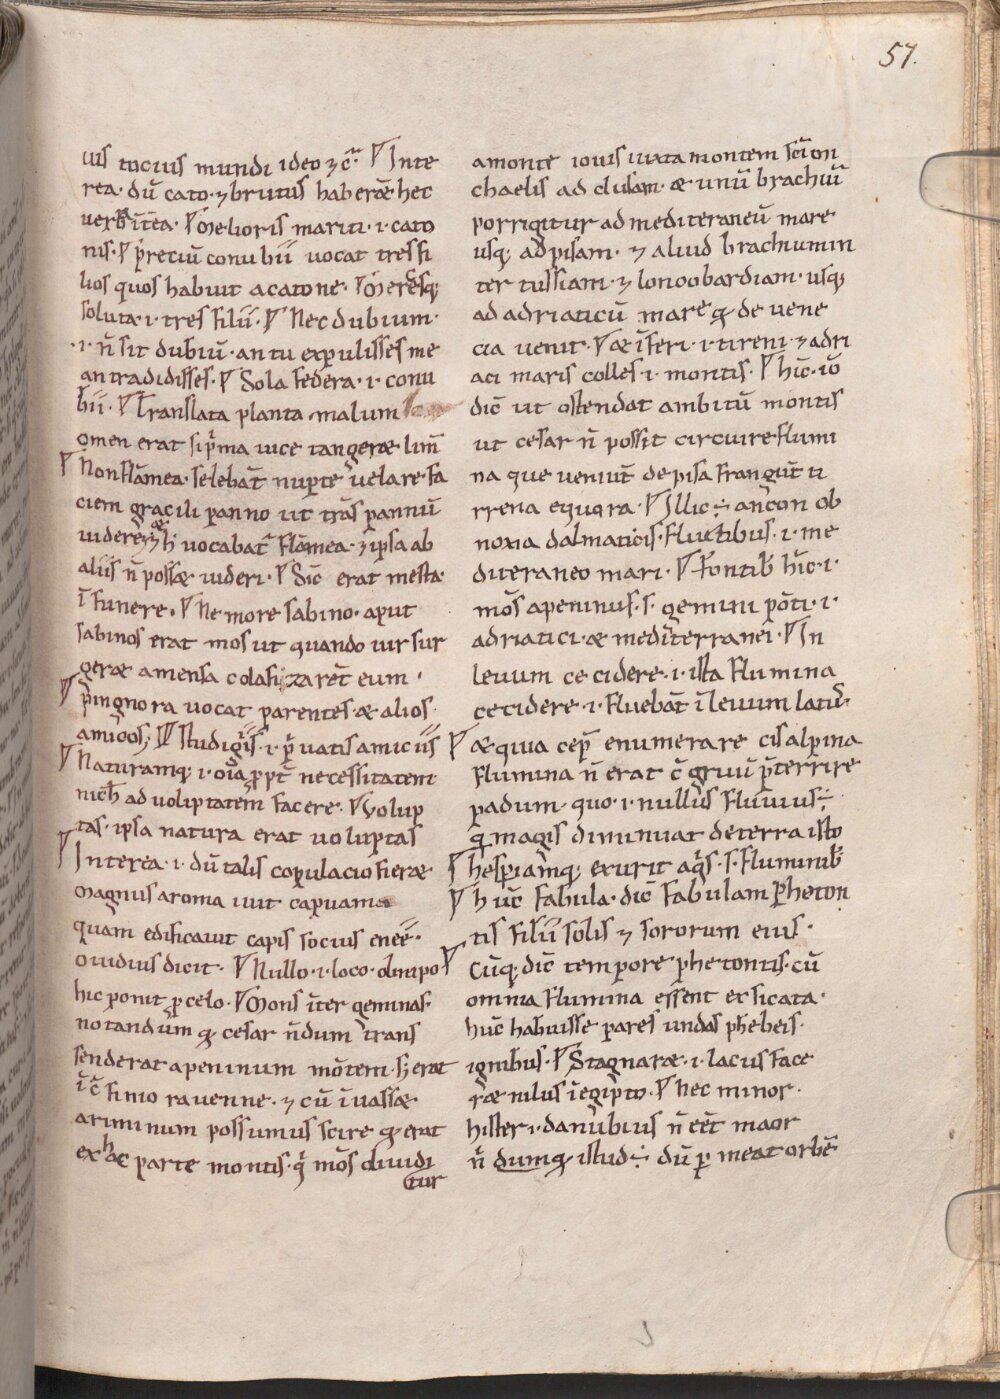 57.
uis tocius mundi ideo ⁊c̄. Inte
rea. dū cato. ⁊ brutus haberēt hec
uerba it̄ea. Melioris mariti .i. cato
nis. p̄reciū conubii uocat tres fi
lios quos habuit a catone.
soluta .i. tres filii. Nec dubium.
.i. n̄ sit dubiū. an tu expulisses me
an tradidisses. Sola federa .i. conu
bii. Translata planta malum
omen erat si p̄ma uice tangeræ lim̄
Non flāmea. solebāt nupte uelare fa
ciem gracili panno ut trās pannū
uocabat̄ flāmea. ⁊ ipsa ab
aliis n̄ possæ uideri. Sic̄ erat mesta
ī funere. Ne more sabino. aput
sabinos erat mos ut quando uir sur
geræ a mensa colafizaret̄ eum.
pingnora uocat parentes æ alios
amicos; Studiis .i. p̄uatis amiciis
Naturamq; .i. oīa ꝓpt̄ necessitatem
nich̄ ad voluptatem facere. Volup
tas. ipsa natura erat uoluptas
Interea .i. dū talis copulacio fieræ
magnus a roma iuit capuam
quam edificauit capis socius eneę.
ouidius dicit. Nullo .i. loco. olimpo
hic ponit ꝓ celo. Mons īter geminas.
notandum qđ cesar n̄dum trans
senderat apeninum mōtem. s; erat
ic̄ fimo rauenne. ⁊ cū īuassæ
ariminum possumus scire qđ erat
ex hac parte montis. q̄ mōs diuidi
tur
a monte iouis iuxta montem sc̄i on
chaelis ad clusam. æ unū brachiū
porrigitur ad mediteraneū mare
usq; ad pisam. ⁊ aliud brachium in
ter tussiam. ⁊ longobardiam. usq;
ad adriaticū mare qđ de vene
cia uenit. æ īferi .i. tireni. ⁊ adri
aci maris colles .i. montis. hic̄. iō
dic̄ ut ostendat ambitū montis
ut cesar n̄ possit circuire flumi
na que ueniūt de pisa frangūt ti
rrena equora. Illic ÷ ancon ob
noxia dalmaticis. fluctibus .i. me
diteraneo mari. Fontib; hic̄ .i.
mōs apeninus. s. gemini pōti .i.
adriatici. æ mediterranei. In
leuum cecidere .i. ista flumina
cecidere .i. fluebāt ī leuum latus
æ quia cep̄ enumerare cisalpina
flumina n̄ erat c̄gruū p̄terrire
padum. quo .i. nullus fluuius ÷
q̄ magis diminuat de terra isto
hesperiamq; exurit aq̄s. s. fluminib;
huc̄ fabula. dic̄ fabulam pheton
tis filii solis ⁊ sororum eius.
Cūq; dic̄ tempore phetontis. cū
omnia flumina essent exsicata.
huc̄ habuisse pares undas phebeis.
ignibus. Stagnaræ .i. lacus face
ræ nilus ī egipto. Nec minor.
hister .i. danubius n̄ eēt maor
n̄ dumq; istud ÷ dū permeat orbē